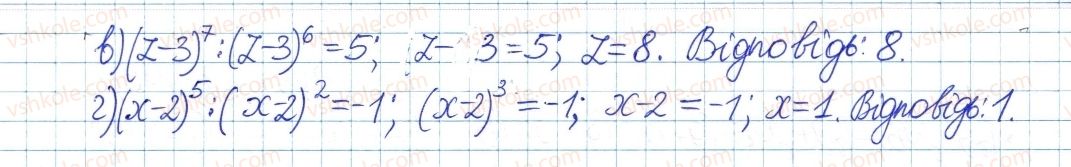 в) (z-3)⁷ : (z-3)⁶ = 5; z- 3 = 5; z = 8. Відповідь: 8.
г) (x-2)⁵ : (x-2)² = -1; (x-2)³ = -1; x-2 = -1; x = 1. Відповідь: 1.